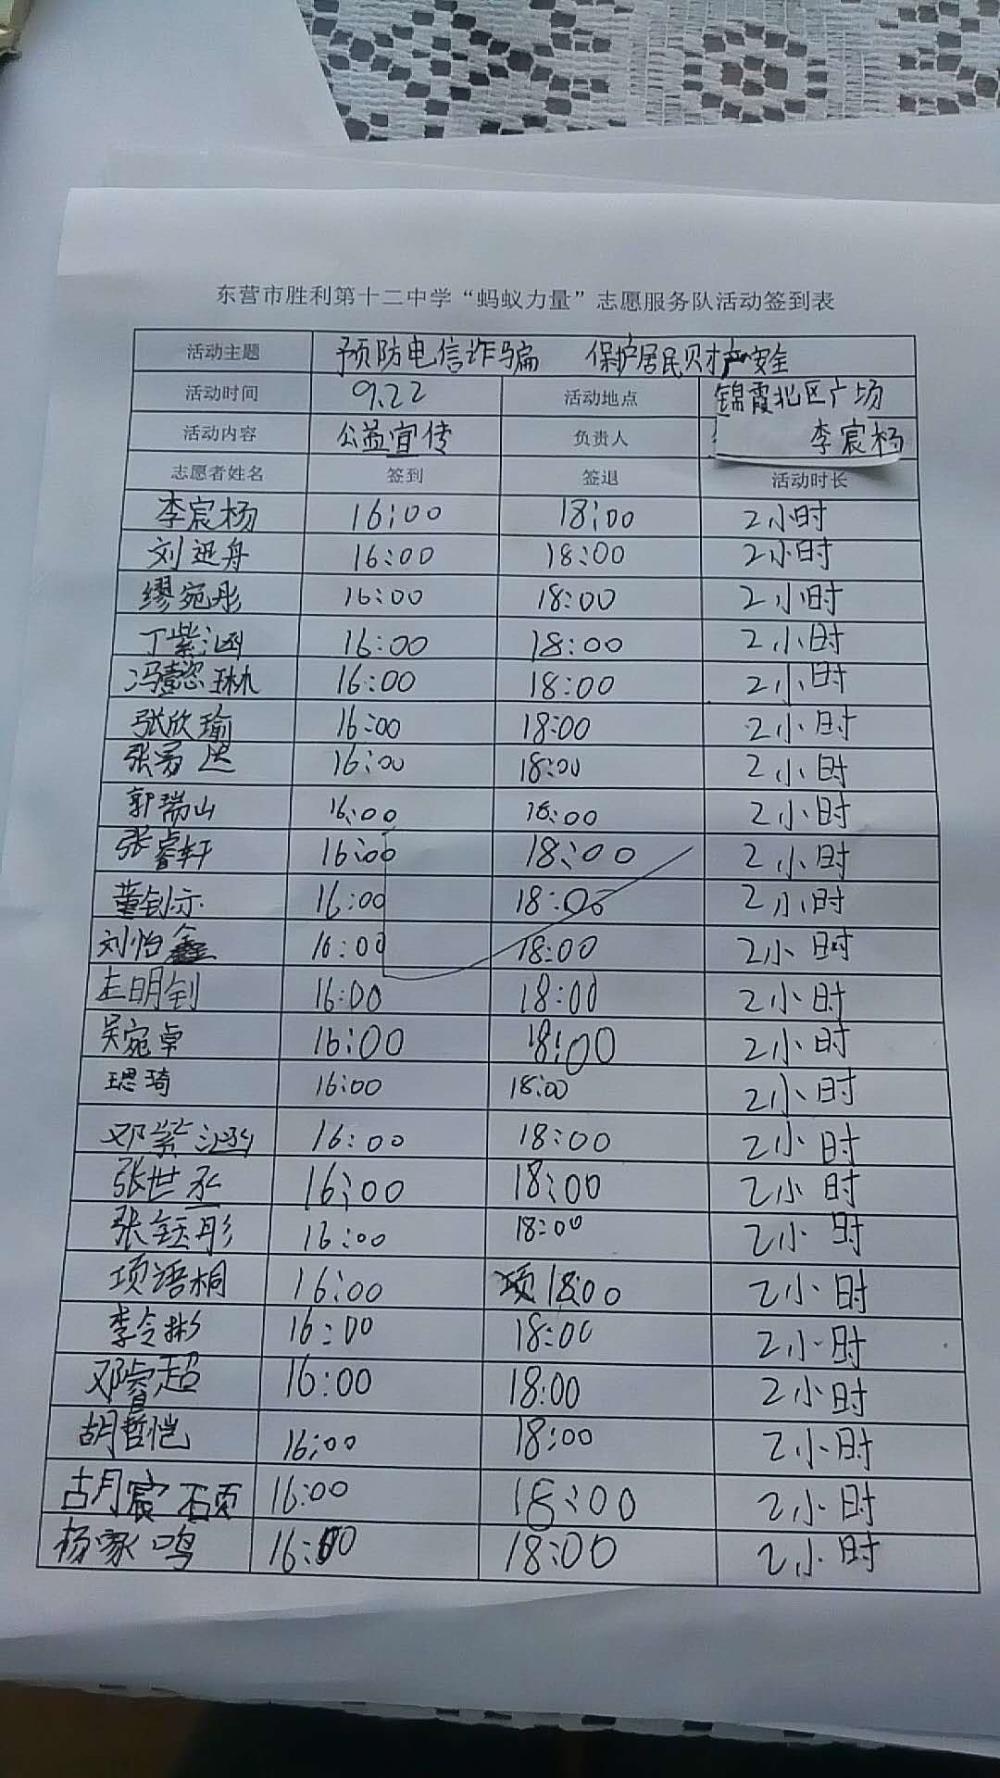 东营市胜利第十二中学“蚂蚁力量”志愿服务队活动签到表
活动主题 预防电信诈骗 保护居民财产安全
活动时间 9.22 活动地点 锦霞北区广场
活动内容 公益宣传 负责人 李宸杨
志愿者姓名 签到 签退 活动时长
李宸杨 16:00 18:00 2小时
刘迅舟 16:00 18:00 2小时
缪宛彤 16:00 18:00 2小时
丁紫涵 16:00 18:00 2小时
冯懿琳 16:00 18:00 2小时
张欣瑜 16:00 18:00 2小时
张 16:00 18:00 2小时
郭瑞山 16:00 18:00 2小时
张睿轩 16:00 18:00 2小时
董钊亦 16:00 18:00 2小时
刘怡鑫 16:00 18:00 2小时
王明钊 16:00 18:00 2小时
吴宛卓 16:00 18:00 2小时
王思琦 16:00 18:00 2小时
邓紫涵 16:00 18:00 2小时
张世丞 16:00 18:00 2小时
张钰彤 16:00 18:00 2小时
项语桐 16:00 项18:00 2小时
李令彬 16:00 18:00 2小时
邓睿超 16:00 18:00 2小时
胡哲恺 16:00 18:00 2小时
胡宸硕 16:00 18:00 2小时
杨家鸣 16:00 18:00 2小时